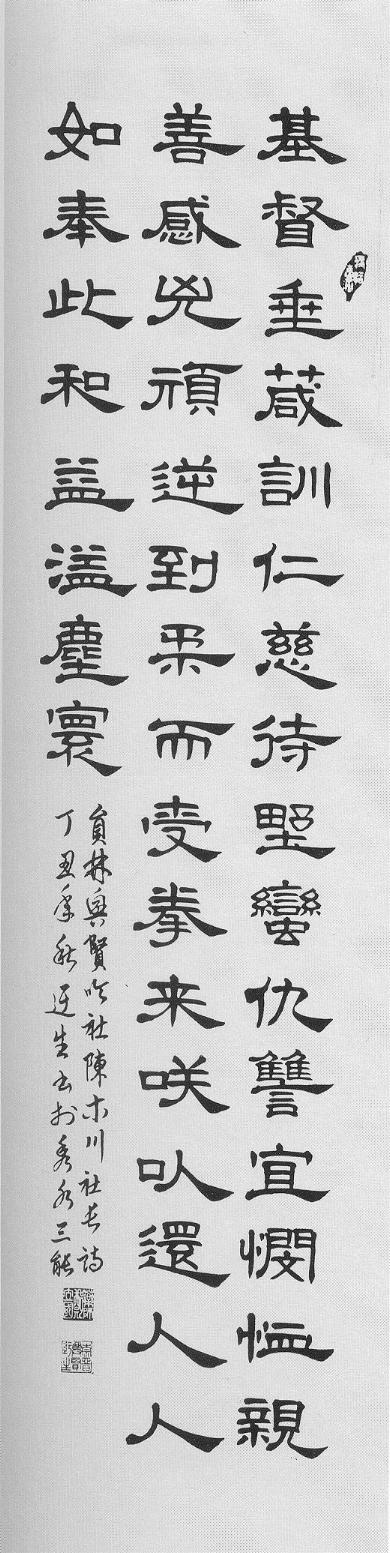 基督垂葴訓仁慈待野蠻仇讐宜憫恤親
善感兇頑逆到柔而受拳来咲以還人人
如奉此和益溢塵寰
員林興賢吟社陳木川社長詩
丁丑年秋迂生書於秀水三能